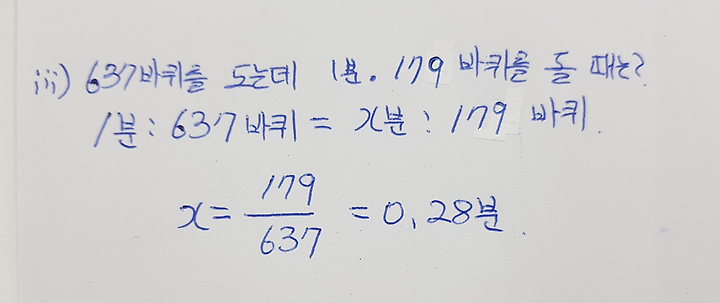 iii) 637바퀴를 도는데 1분. 179 바퀴를 돌 때는?
1분 : 637바퀴 = x분 : 179 바퀴
x = 179/637 = 0.28분.